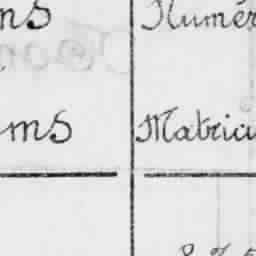 ns Numér
ms Matricu